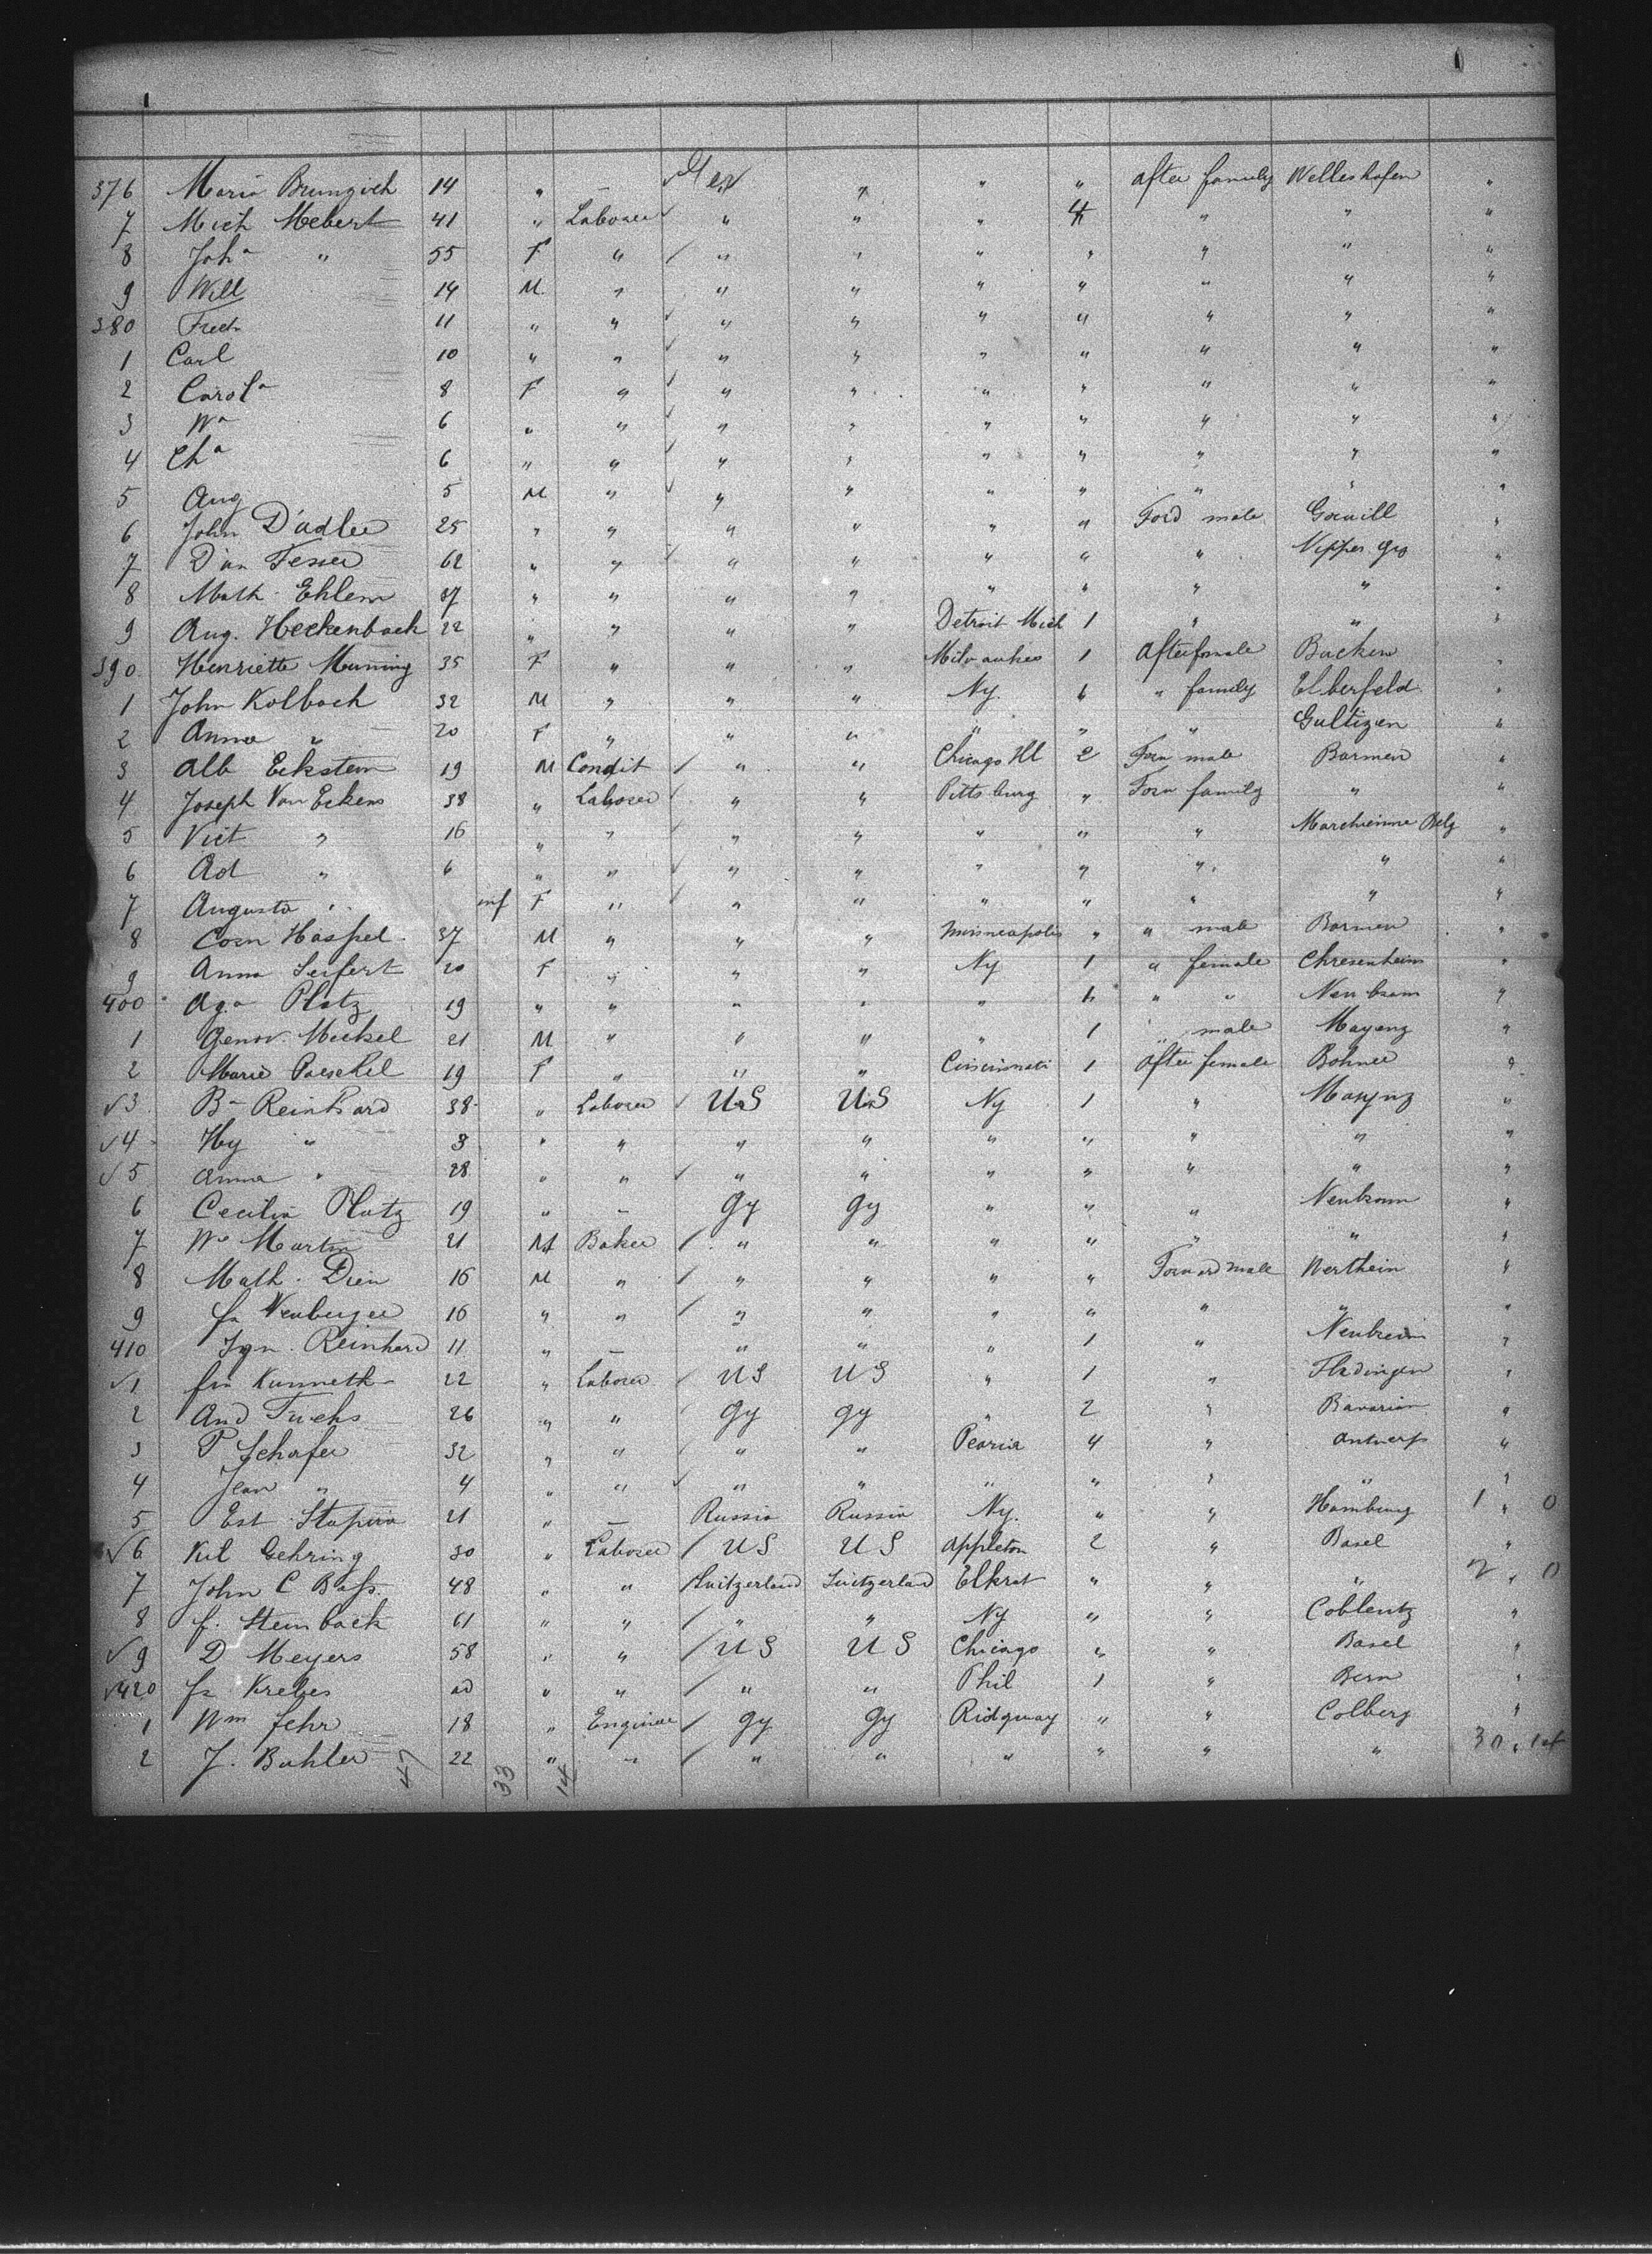 376 Marie Brungich 14 " – Ger " " " after family Welleshofen "
7 Mich Mebert 41 " Laborer " " " 4 " " "
8 Joha " 55 F " " " " " " " "
9 Will 14 M " " " " " " " "
380 Fredr 11 " " " " " " " " "
1 Carl 10 " " " " " " " " "
2 Carola 8 F " " " " " " " "
3 Wa 6 " " " " " " " " "
4 Cha 6 " " " " " " " " "
5 Aug 5 M " " " " " " " "
6 John D'adler 25 " " " " " " Ford male "
7 D'an Fesser 62 " " " " " " " Nippes "
8 Math. Ehlem 37 " " " " " " " " "
9 Aug. Heckenback 22 " " " " Detroit Mich 1 " " "
390 Henriette Menning 35 F " " " Milwaukee 1 After female Backen "
1 John Kolbach 32 M " " " Ny. " family Elberfeld "
2 Anna " 20 F " " " " " " Gultizen "
3 Alb Eckstein 19 M Condit " " Chicago Ill 2 Forw male Barmen "
4 Joseph Van Eckens 38 " Laborer " " Pittsburg " Forw family " "
5 Vict " 16 " " " " " " " Marchienne Belg "
6 Ad " 6 " " " " " " " " "
7 Augusta " inf F " " " " " " " "
8 Corn Haspel 37 M " " " Minneapolis " " male Barmen "
9 Anna Seifert 20 F " " " Ny 1 " female Chresenheim "
400 Aga Platz 19 " " " " " " " Neubrom "
1 Genov. Meckel 21 M " " " " 1 " male Mayenz "
2 Marie Paeschel 19 F " " " Cincinnati 1 After female Bohner "
3 Ba Reinhard 38 " Laborer US US Ny 1 " Mayenz "
4 Hy " 3 " " " " " " " " "
5 Anna " 28 " " " " " " " " "
6 Cecilia Platz 19 " – Gy Gy " " " Neubronn "
7 Wm Martin 21 M Baker " " " " " " "
8 Math. Dien 16 M " " " " " Forward male Werthein "
9 fr Neuberger 16 " " " " " " " " "
410 Ign. Reinhard 11 " – " " " 1 " Neubrein "
1 frn Kunneth 22 " Laborer US US " 1 " Fladingen "
2 And Fuchs 26 " " Gy Gy " 2 " Bavarian "
3 P Schafer 32 " " " " Peoria 4 " Antwerp "
4 Jean " 4 " " " " " " " " "
5 Est Stapira 21 " – Russia Russia Ny. " " Hamburg 1 " 0
6 Kil Gehring 30 " Laborer US US Appleton 2 " Basel "
7 John C Bass. 48 " " Switzerland Switzerland " " " 2 " 0
8 f. Steinback 61 " " " " Ny " " Coblentz "
9 D Meyers 58 " " US US Chicago " " Basel "
420 fr Krebes ad " " " " Phil 1 " Bern "
1 Wm Fehr 18 " Engineer Gy Gy Ridgway " " Colberg "
2 J. Buhler 22 " – " " " " " " 30
47 33 14